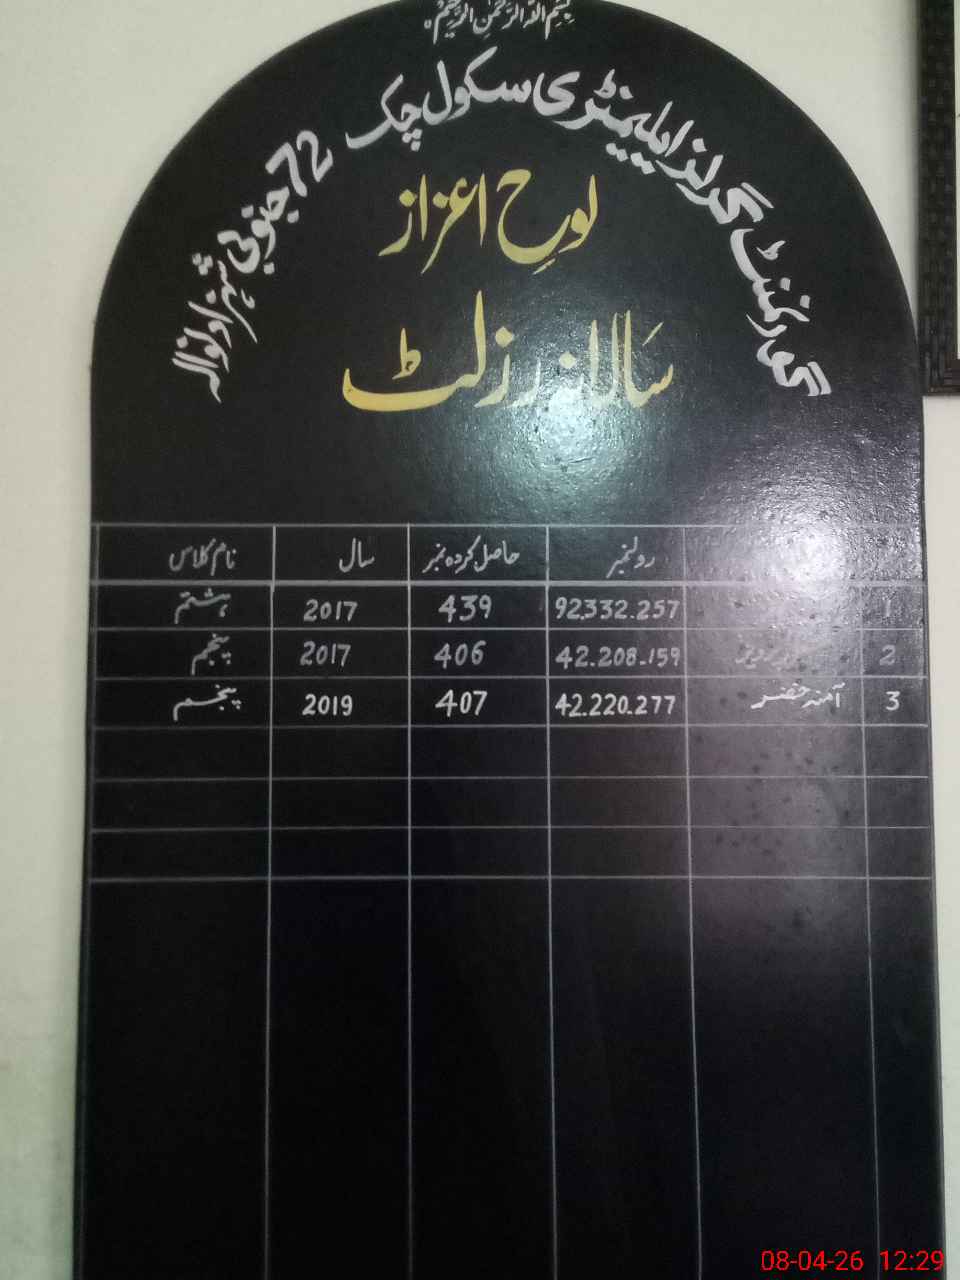 بِسْمِ اللهِ الرَّحْمٰنِ الرَّحِیْمِ
گورنمنٹ گرلز ایلیمنٹری سکول چک 72 جنوبی شہزادوالہ
لوحِ اعزاز
سالانہ رزلٹ
رولنمبر حاصل کردہ نمبر سال نام کلاس
1 92332-257 439 2017 ہشتم
2 42-208-159 406 2017 پنجم
3 آمنہ خضر 42-220-277 407 2019 پنجم
08-04-26 12:29